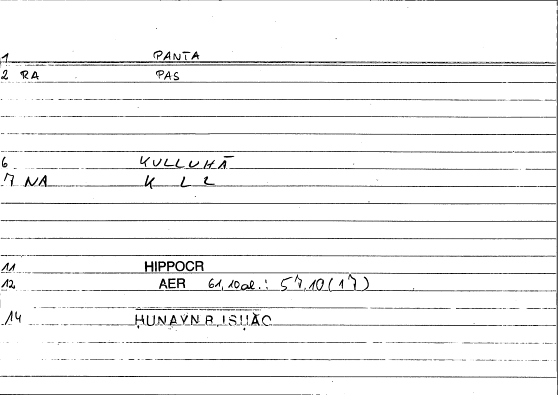 1 PANTA
2 RA PAS
6 KULLUHĀ
7 NA K L L
11 HIPPOCR
12 AER 61,10al.: 57,10(17)
14 ḤUNAYN B. ISḤĀQ